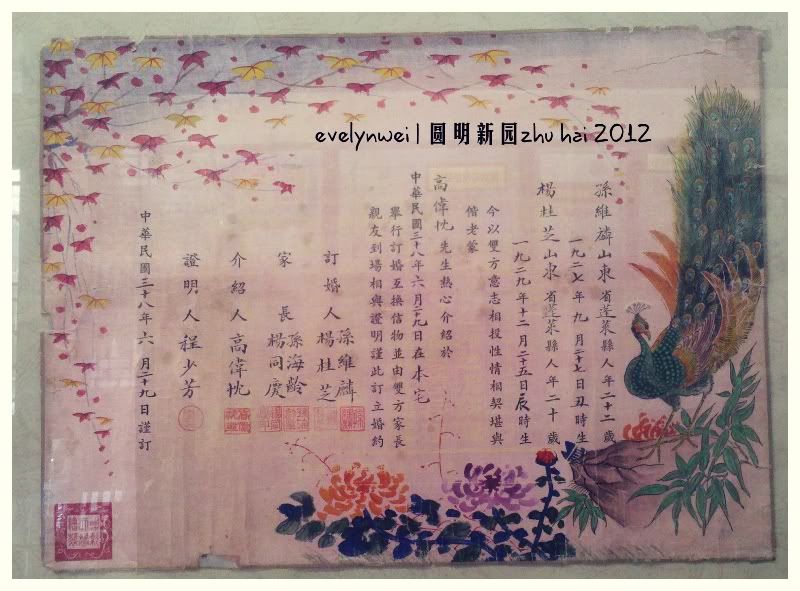 evelynwei | 圆明新园zhu hai 2012
孫維麟山東省蓬萊縣人年二十二歲
一九二七年九月二十七日丑時生
楊桂芝山東省蓬萊縣人年二十歲
一九二九年十二月二十五日辰時生
今以雙方意志相投性情相契堪與
偕老蒙
高偉忱先生熱心介紹於
中華民國三十八年六月二十九日在本宅
舉行訂婚互換信物並由雙方家長
親友到場相與證明謹此訂立婚約
訂婚人 孫維麟 楊桂芝
家長 孫海齡 楊同慶
介紹人 高偉忱
證明人 程少芳
中華民國三十八年六月二十九日謹訂